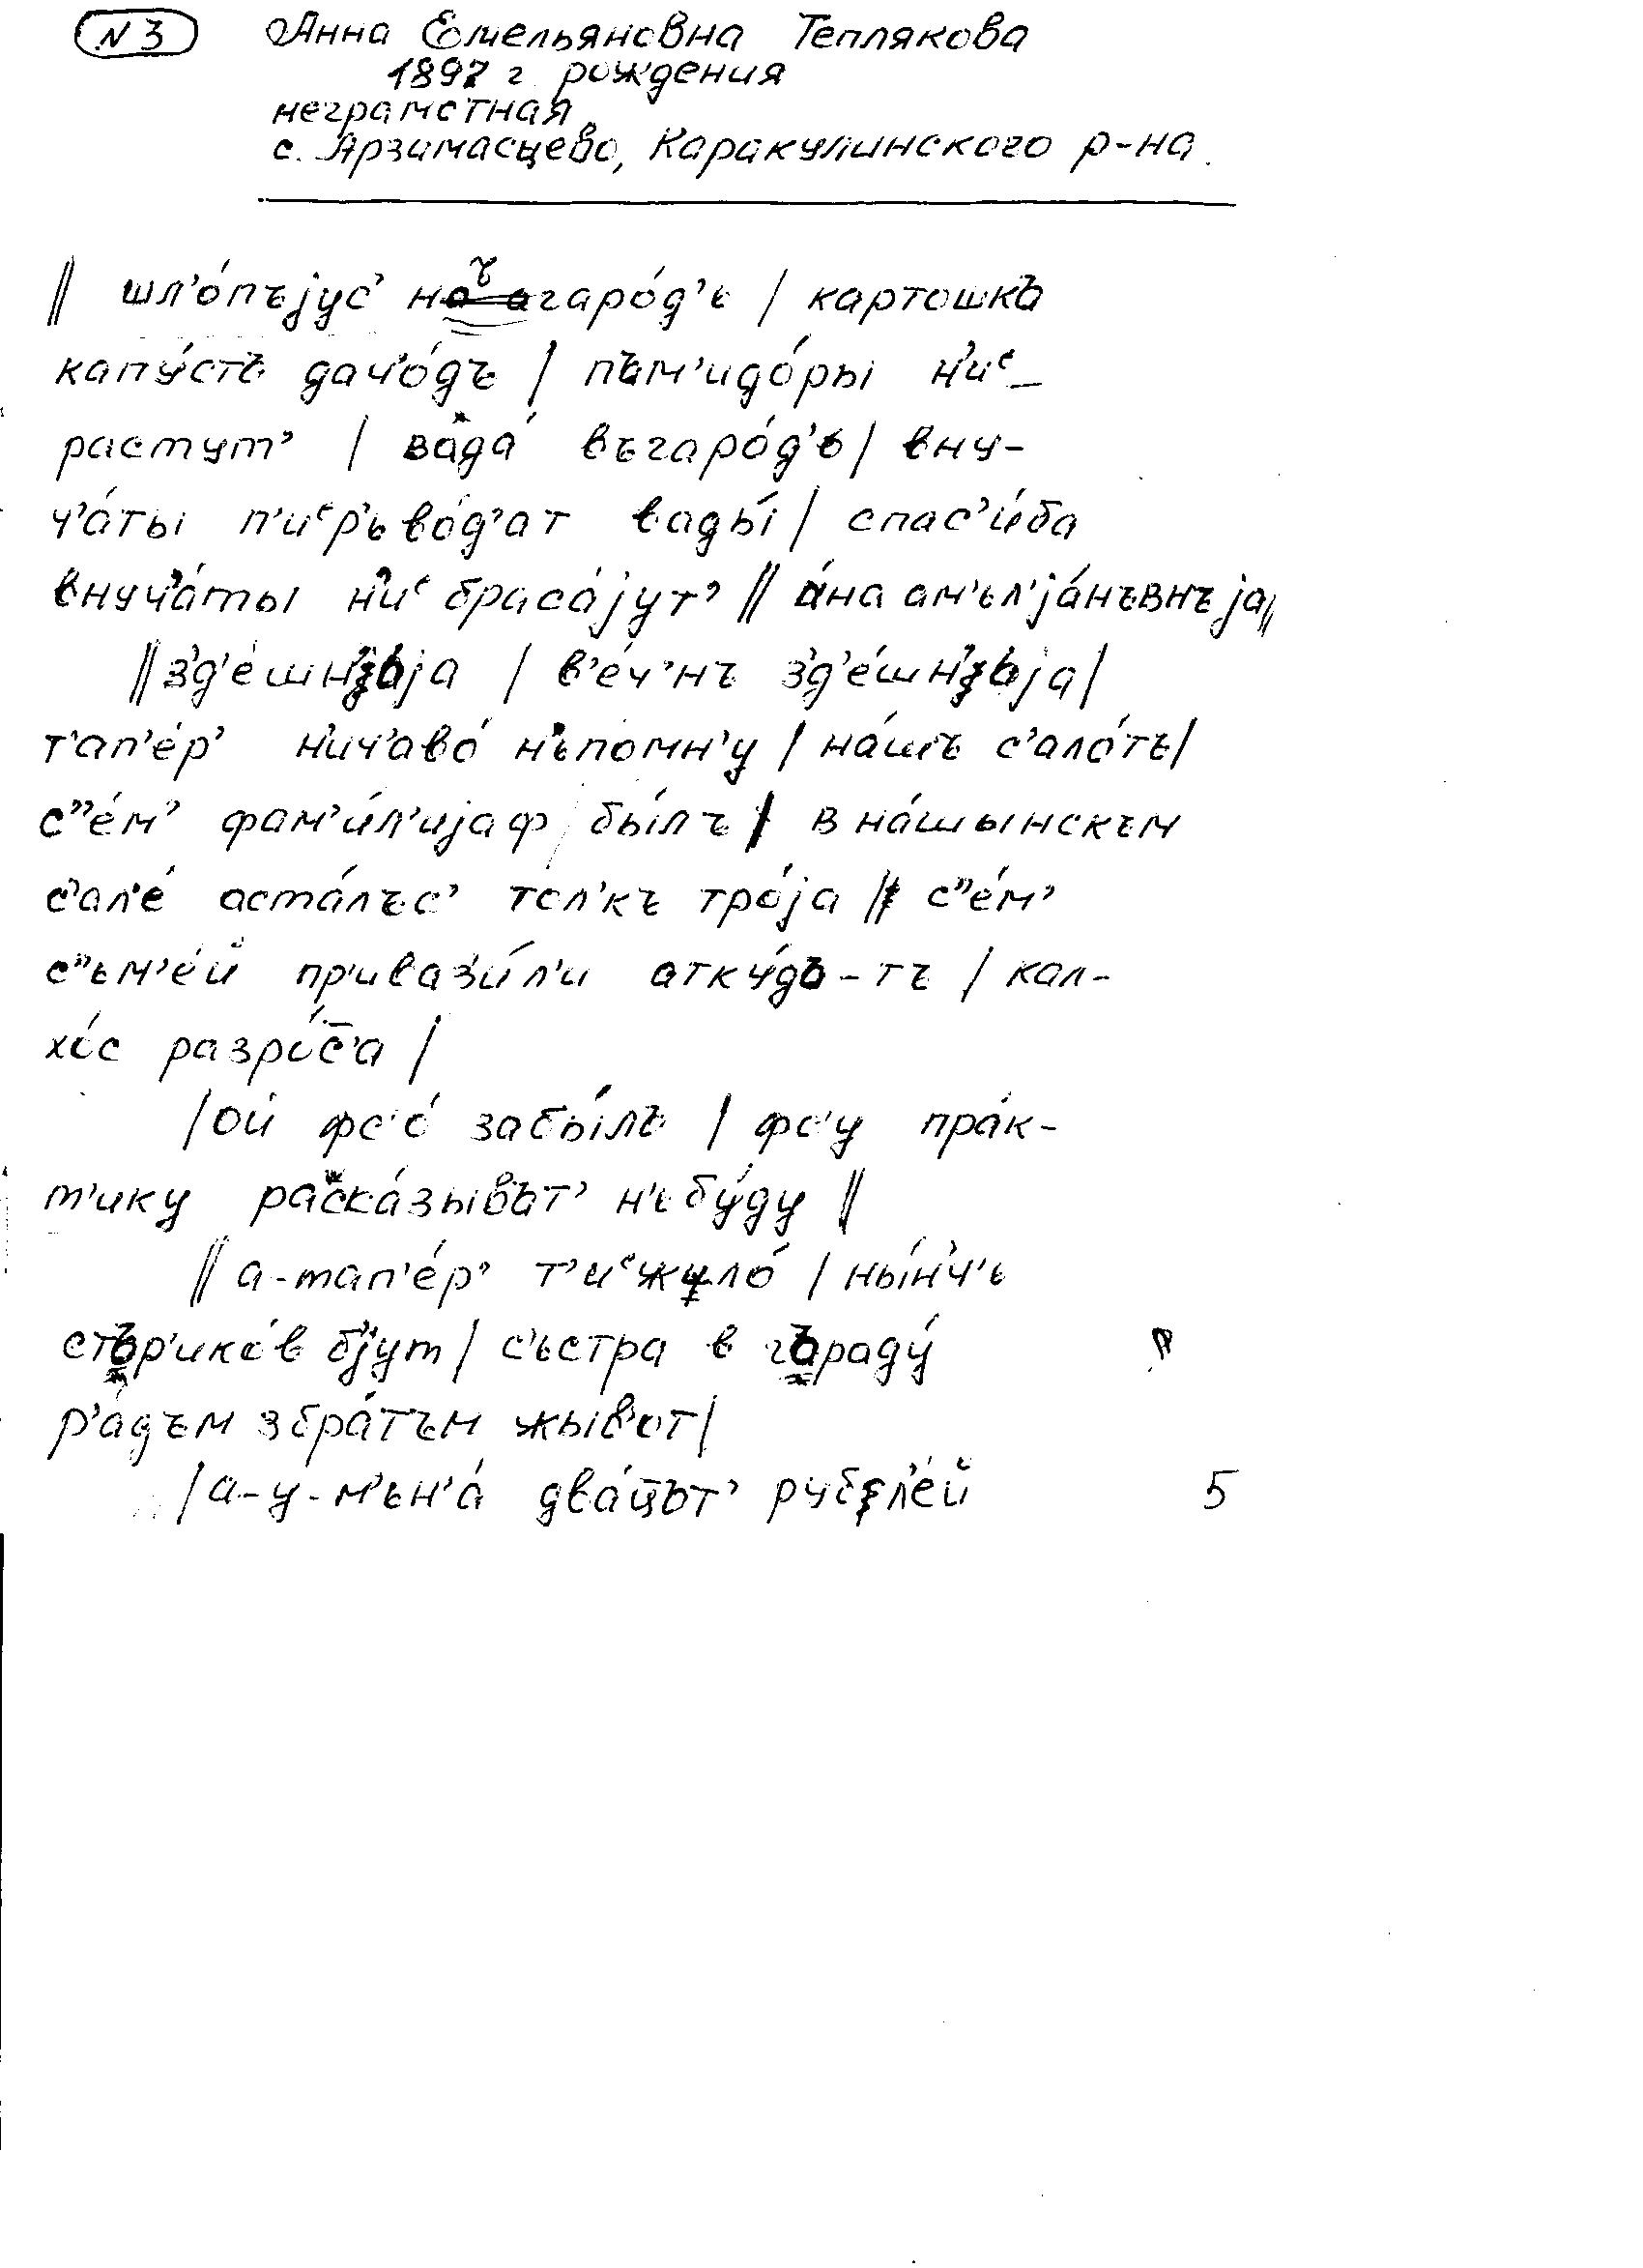 N 3 Анна Емельяновна Теплякова
1897 г. рождения
неграмотная
с. Арзамасцево, Каракулинского р-на.
|| шл'о́пъjус' нъгаро́д'ь | картошкъ
капу́стъ дач'о́дъ | пъм'идо́ры н'иᵉ_
растут' | вада́ въгаро́д'ь | вну-
ч'а́ты п'иᵉр'ьво́д'ат вады́ | спас'и́ба
внуч'а́ты н'иᵉ браса́jут' || а́на ам'ьл'jа́нъвнъ jа ||
|| з'д'е́шн'ьjа | в'е́ч'нъ з'д'е́шн'ьjа |
т'ап'е́р' н'ич'аво́ н'ьпомн'у | на́шъ с'ало́тъ |
с''е́м' фам'и́л'иjаф бы́лъ | в на́шынскъм
с'ал'е́ аста́лъс' тол'къ тро́jа || с''е́м'
с''ьм'е́й пр'иваз'и́л'и аткýдъ-тъ | кал-
хо́с разро́с̅'а |
| ой фс'о́ забы́лъ | фс'у пра́к-
т'ику раска́зывът' н'ьбу́ду ||
|| а-тап'е́р' т'иᵉжыло́ | ны́н'ч'ь
стър'ико́в б'jут | с'ьстра в гъраду́
р'а́дъм збра́тъм жыв'от |
| а-у-м'ьн'а́ два́ц̅ът' рубл'е́й 5